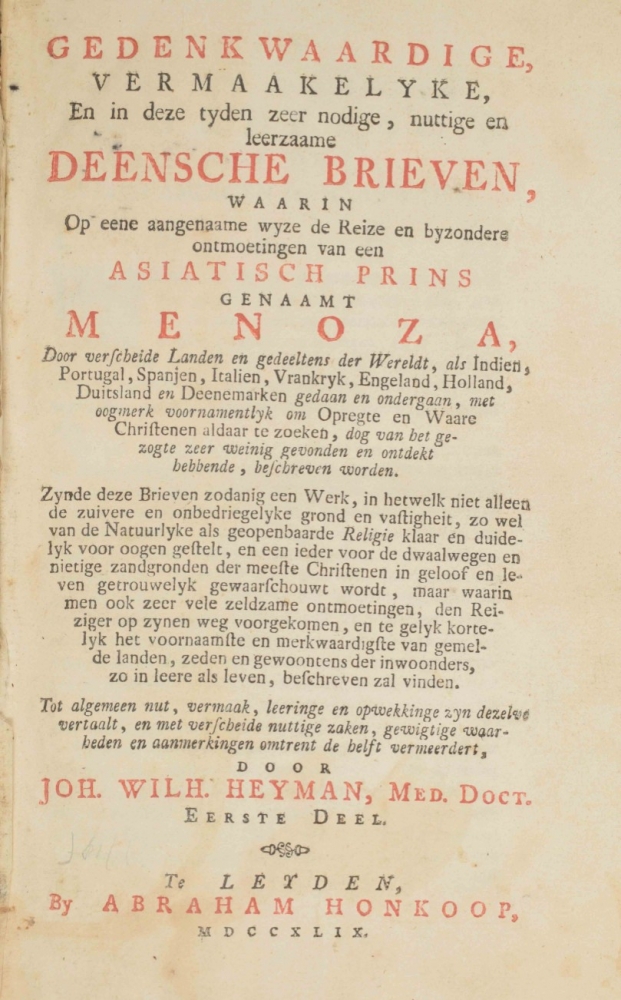 GEDENKWAARDIGE,
VERMAAKELYKE,
En in deze tyden zeer nodige, nuttige en
leerzaame
DEENSCHE BRIEVEN,
WAARIN
Op eene aangenaame wyze de Reize en byzondere
ontmoetingen van een
ASIATISCH PRINS
GENAAMT
MENOZA,
Door verſcheide Landen en gedeeltens der Wereldt, als Indien,
Portugal, Spanjen, Italien, Vrankryk, Engeland, Holland,
Duitsland en Deenemarken gedaan en ondergaan, met
oogmerk voornamentlyk om Opregte en Waare
Chriſtenen aldaar te zoeken, dog van het ge-
zogte zeer weinig gevonden en ontdekt
hebbende, beſchreven worden.
Zynde deze Brieven zodanig een Werk, in hetwelk niet alleen
de zuivere en onbedriegelyke grond en vaſtigheit, zo wel
van de Natuurlyke als geopenbaarde Religie klaar en duide-
lyk voor oogen geſtelt, en een ieder voor de dwaalwegen en
nietige zandgronden der meeſte Chriſtenen in geloof en le-
ven getrouwelyk gewaarſchouwt wordt, maar waarin
men ook zeer vele zeldzame ontmoetingen, den Rei-
ziger op zynen weg voorgekomen, en te gelyk korte-
lyk het voornaamſte en merkwaardigſte van gemel-
de landen, zeden en gewoontens der inwoonders,
zo in leere als leven, beſchreven zal vinden.
Tot algemeen nut, vermaak, leeringe en opwekkinge zyn dezelve
vertaalt, en met verſcheide nuttige zaken, gewigtige waar-
heden en aanmerkingen omtrent de helft vermeerdert,
DOOR
JOH. WILH. HEYMAN, MED. DOCT.
EERSTE DEEL.
Te LEYDEN,
By ABRAHAM HONKOOP,
MDCCXLIX.